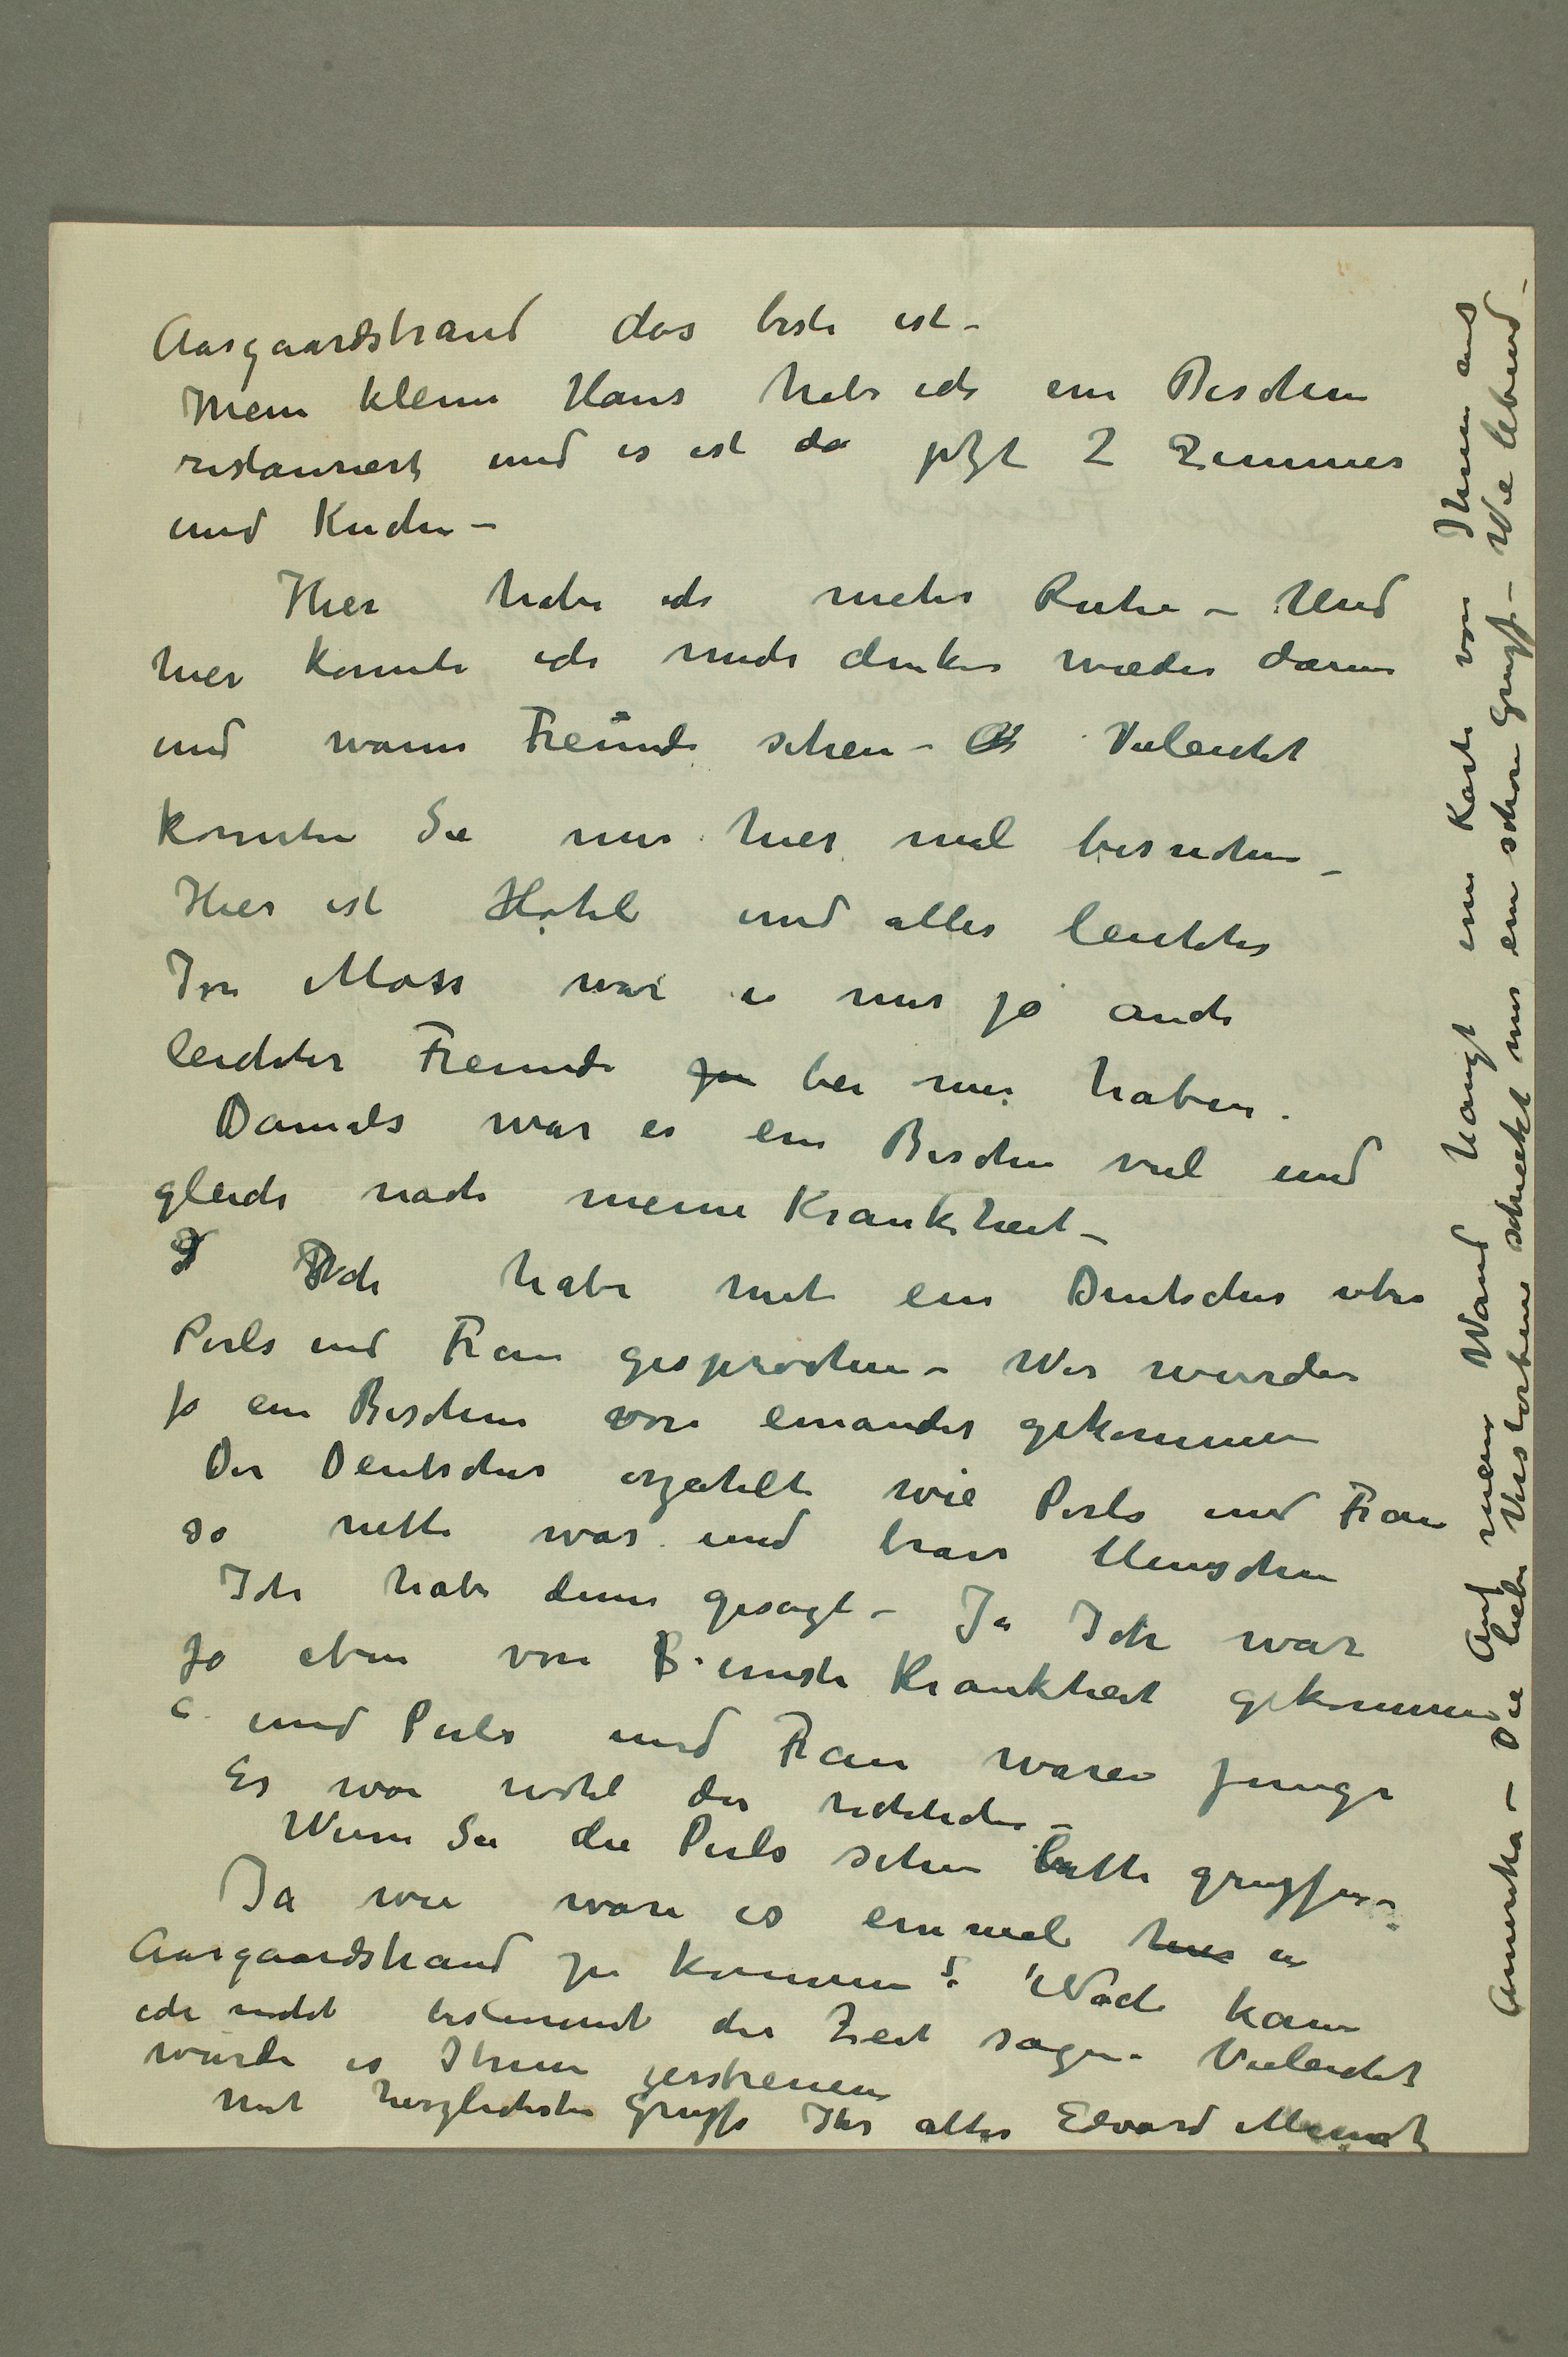 Aasgaardstrand das beste ist –
Mein kleine Haus habe ich ein Bischen
restauriert und es ist da jetzt 2 Zimmer
und Küche –
Hier habe ich mehr Ruhe – Und
hier konnte ich mich denken wieder dann
und wann Freunde sehen – Vieleicht
konnten Sie mir hier mal besuchen –
Hier ist Hotel und alles leichter
In Moss war es mir ja auch
leichter Freunde zu bei mir haben.
Damals war es ein Bischen viel und
gleich nach meine Krankheit –
Ich habe mit ein Deutscher uber
Perls und Frau gesprochen – Wir wurden
ja ein Bischen von einander gekommen
Der Deutscher erzahlte wie Perls und Frau
so nette war und brave Menschen
Ich habe denn gesagt – Ja Ich war
ja eben von ernste Krankheit gekommen
und Perls und Frau waren junge
Es war wohl das richtiche –
Wenn Sie die Perls sehen bitte grüssen –
Ja wie ware es einmal hier in
Aasgaardstrand zu kommen? Noch kann
ich nicht bestimmt die Zeit sagen. Vieleicht
würde es Ihnen zerstreuen
Mit herzlichste Grusse Ihr alter Edvard Munch
Auf meine Wand hangt eine Karte von Ihnen aus
Amerika – Die liebe Verstorbene schickt mir ein schöne Gruss – Wie lebend –